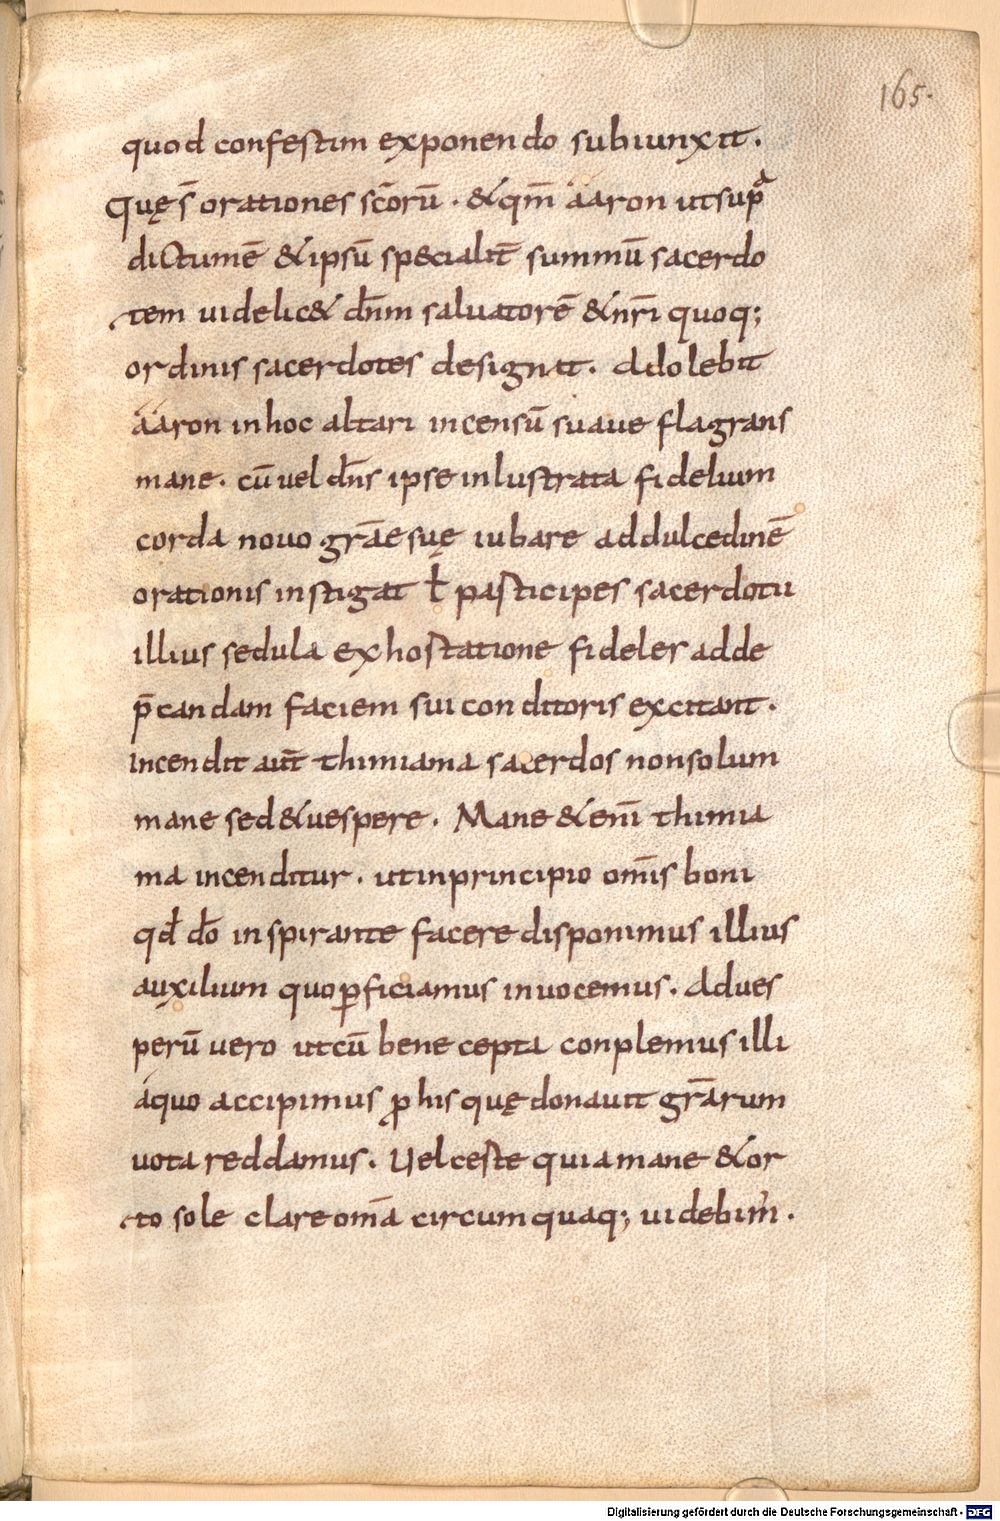 165.
quod confestim exponendo subiunxit.
Quę s̄ orationes sc̄orū. & qm̄ áaron ut sup̄
dictum ē & ipsū specialit̄ summū sacerdo
tem uidelic& dn̄m saluatorē & nr̄i quoq;
ordinis sacerdotes designat. Adolebit
ááron in hoc altari incensū suaue flagrans
mane. cū uel dn̄s ipse inlustrata fidelium
corda nouo grāe suę iubare ad dulcedinē
orationis instigat ł pasticipes sacerdotii
illius sedula exhostatione fideles ad de
p̄candam faciem sui conditoris excitant.
incendit aut̄ thimiama sacerdos non solum
mane sed & uespere. Mane & eni̅ thimia
ma incenditur. ut in principio om̄is boni
qđ do̅ inspirante facere disponimus illius
auxilium quo ꝑficiamus inuocemus. Ad ues
perū uero ut cū bene cepta conplemus illi
áquo accipimus ꝓ his quę donauit gr̄arum
uota reddamus. Uel ceste quia mane & or
to sole clare om̄a circum quaq; uidebim'.
Digitalisierung gefördert durch die Deutsche Forschungsgemeinschaft - DFG